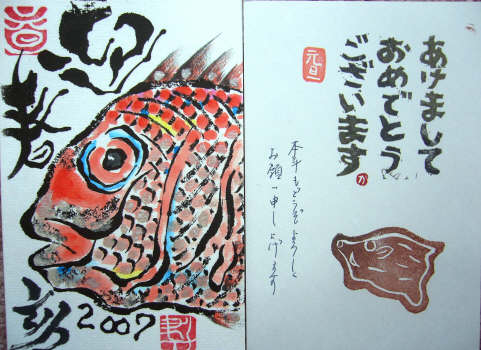 迎春
2007
あけまして
おめでとう
ございます
元旦
本年もどうぞよろしく
お願い申し上げます